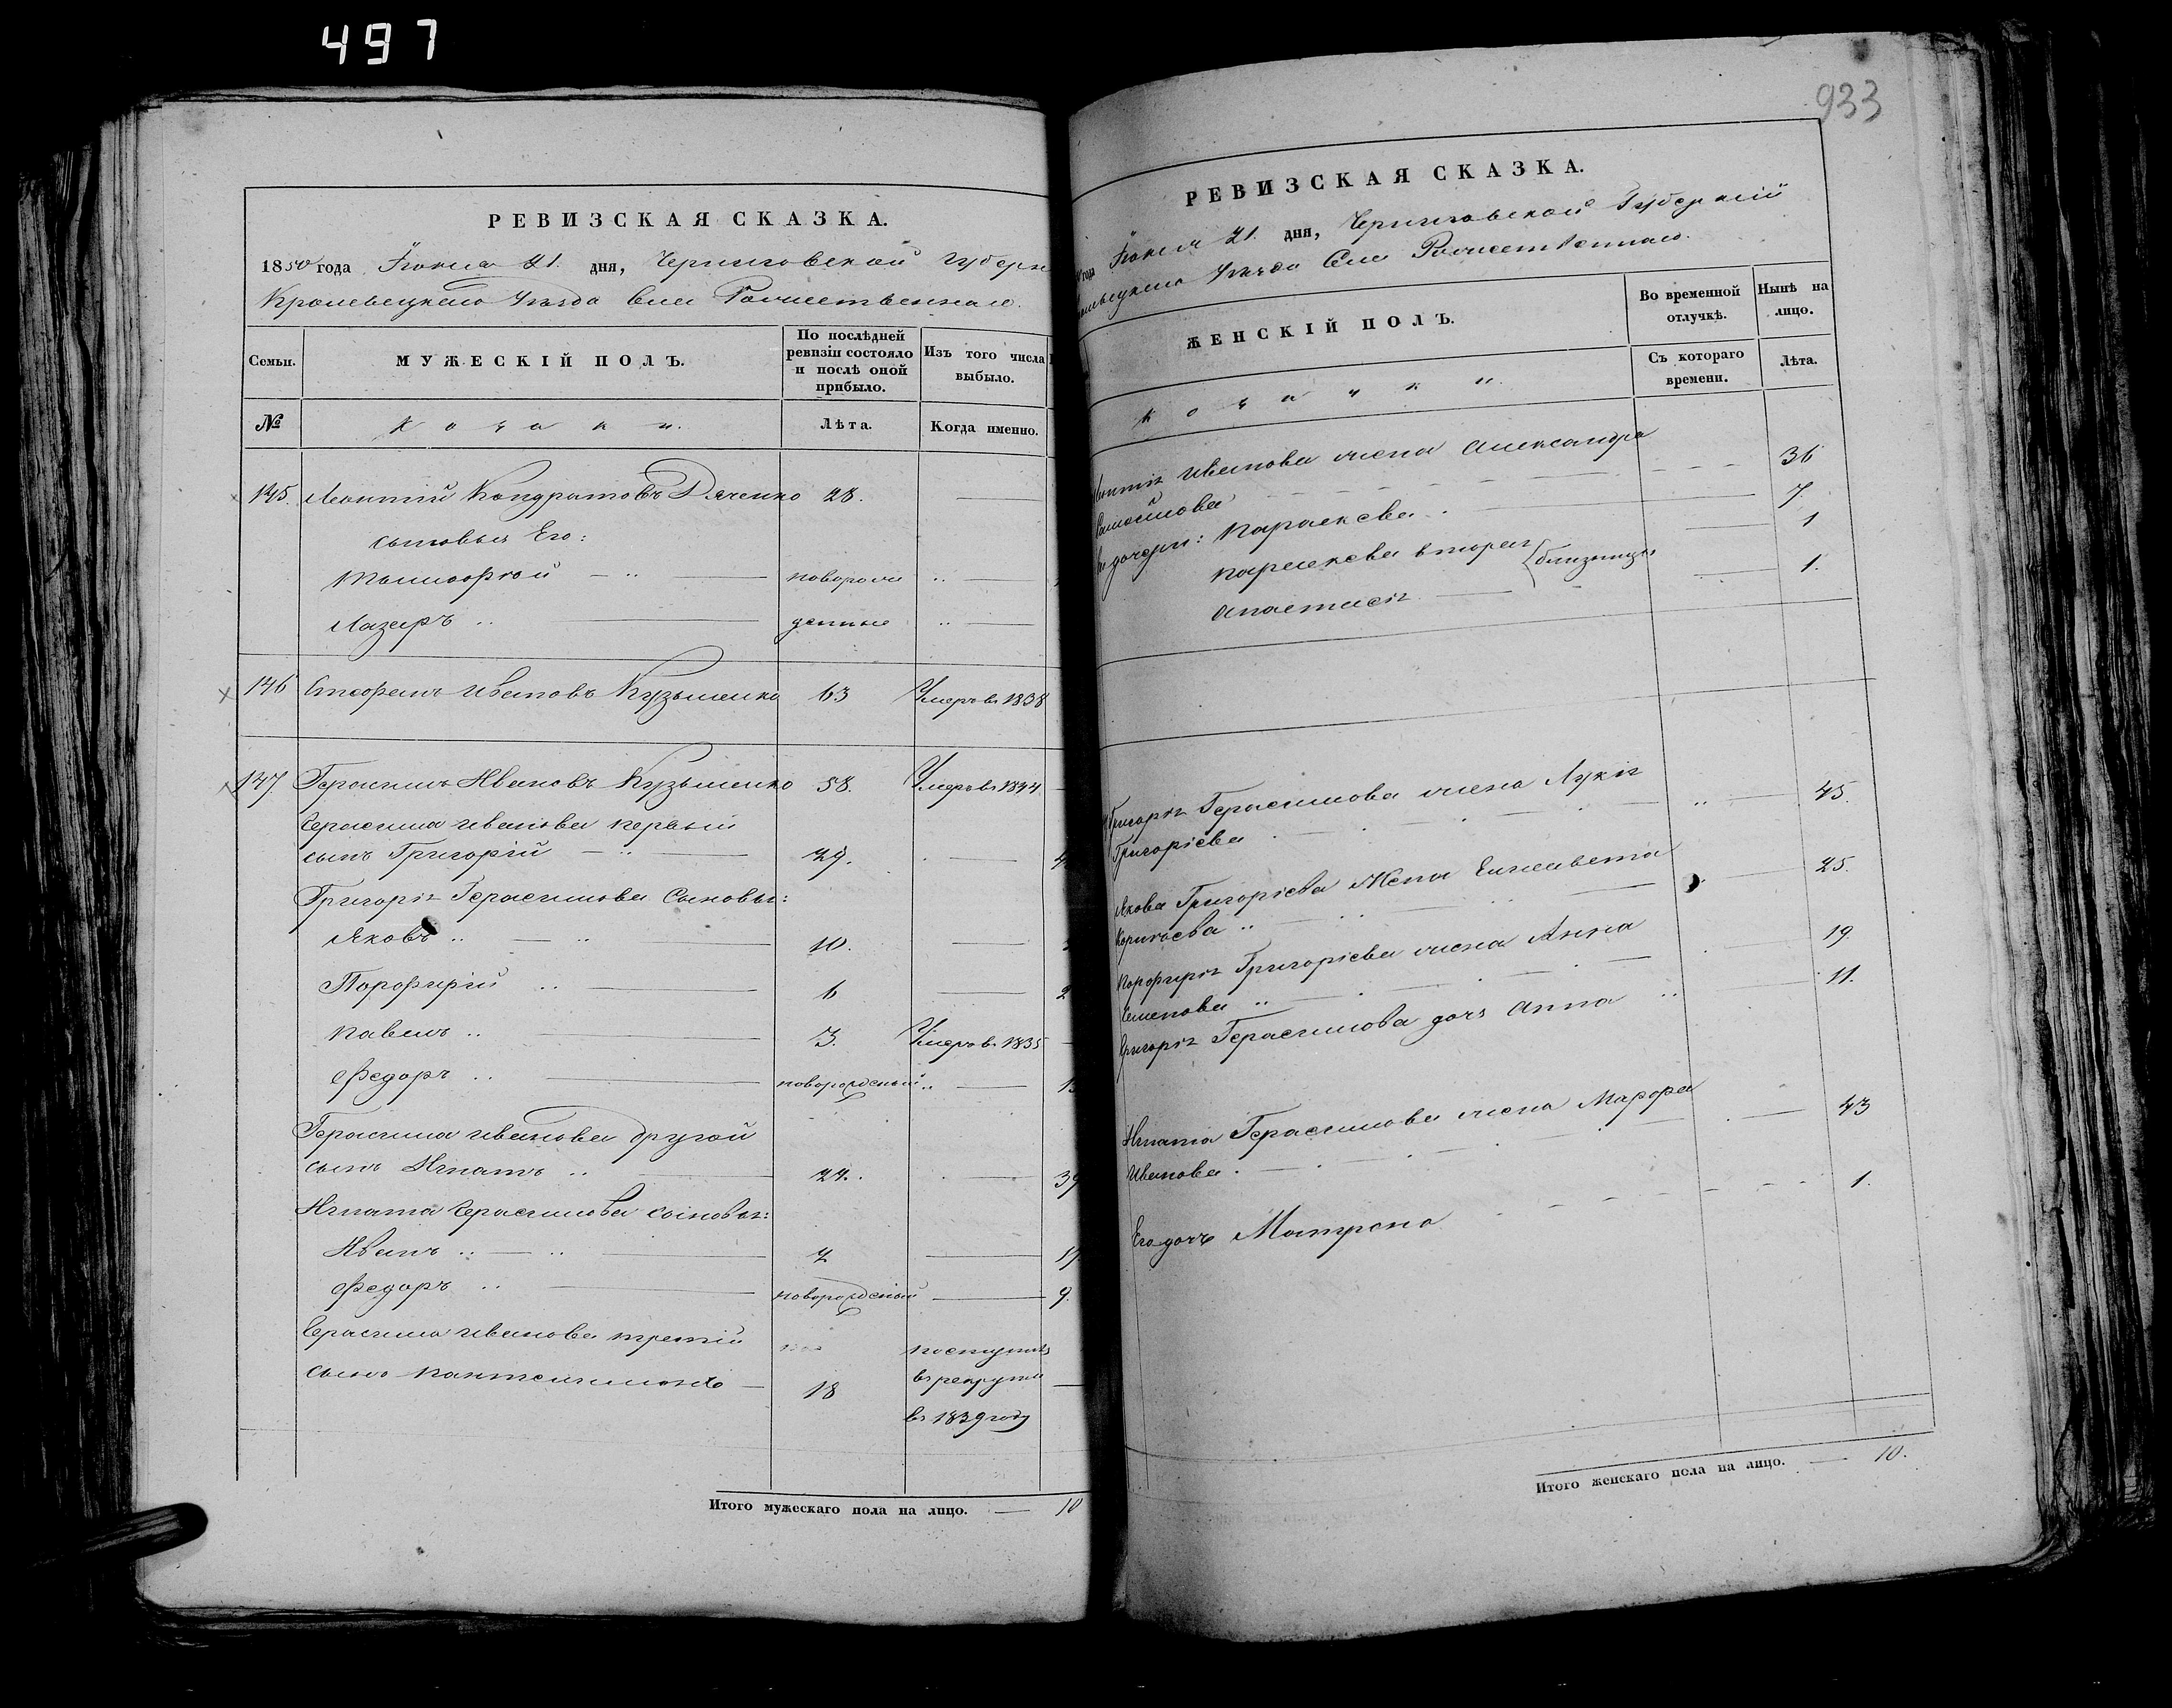 497
РЕВИЗСКАЯ СКАЗКА.
1850 года Іюня 21. дня, Черниговской Губерн
Кролевецкаго Уезда Села Рожественнаго.
Семьи.
МУЖЕСКІЙ ПОЛЪ.
По послѣдней ревизіи состояло и послѣ оной прибыло.
Изъ того числа выбыло.
№
Козаки.
Лѣта.
Когда именно.
145. Леонтій Кондратовъ Дяченко 28.
сыновья Его:
Тимофей новорож
Лазарь денные
146 Стефанъ Ивановъ Кузьменко 63 Умеръ въ 1838
147. Герасимъ Ивановъ Кузьменко 58. Умеръ въ 1844
Герасима Иванова первый
сынъ Григорій 29.
Григорія Герасимова Сыновья:
Яковъ 10.
Порофирій 6 2
Павелъ 3. Умеръ въ 1835
Федоръ новорожденный
Герасима Иванова другой
сынъ Игнатъ 24. 39
Игната Герасимова сыновья:
Иванъ 2
Федоръ новорожденный 9.
Герасима Иванова третій поступилъ
сынъ Пантелимонъ 18 въ рекруты
въ 1839 году
Итого мужескаго пола на лицо. 10
933
РЕВИЗСКАЯ СКАЗКА.
года Іюня 21. дня, Черниговской Губерніи
Уезда Села Рожественнаго.
ЖЕНСКІЙ ПОЛЪ.
Во временной отлучкѣ.
Нынѣ на лицо.
Козачки.
Съ котораго времени.
Лѣта.
Иванова жена Александра
36
дочери: Параскева 7.
Параскева вторая близницы 1
Анастасія 1.
Григорія Герасимова жена Лукія
Григорієва 45.
Якова Григорієва Жена Елисавета
25.
Порофирія Григорієва жена Анна
Семенова 19.
Григорія Герасимова дочь Анна 11.
Игната Герасимова жена Марфа
Иванова. 43
Его дочь Матрона 1.
Итого женскаго пола на лицо. 10.